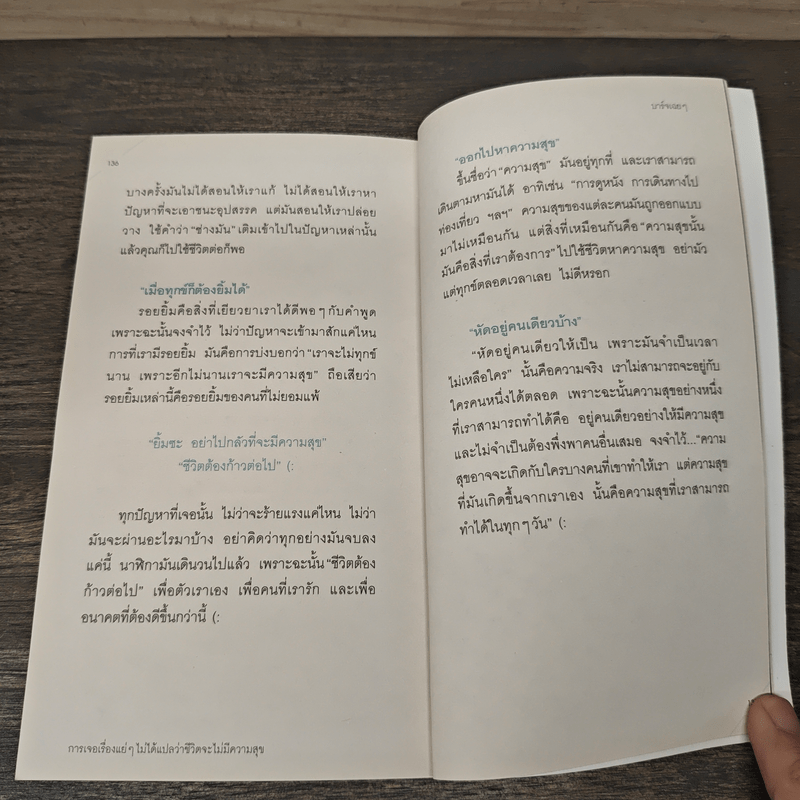 136
บางครั้งมันไม่ได้สอนให้เราแก้ ไม่ได้สอนให้เราหา
ปัญหาที่จะเอาชนะอุปสรรค แต่มันสอนให้เราปล่อย
วาง ใช้คำว่า “ช่างมัน” เติมเข้าไปในปัญหาเหล่านั้น
แล้วคุณก็ไปใช้ชีวิตต่อก็พอ
“เมื่อทุกข์ก็ต้องยิ้มได้”
รอยยิ้มคือสิ่งที่เยียวยาเราได้ดีพอๆ กับคำพูด
เพราะฉะนั้นจงจำไว้ ไม่ว่าปัญหาจะเข้ามาสักแค่ไหน
การที่เรามีรอยยิ้ม มันคือการบ่งบอกว่า “เราจะไม่ทุกข์
นาน เพราะอีกไม่นานเราจะมีความสุข” ถือเสียว่า
รอยยิ้มเหล่านี้คือรอยยิ้มของคนที่ไม่ยอมแพ้
“ยิ้มซะ อย่าไปกลัวที่จะมีความสุข”
“ชีวิตต้องก้าวต่อไป” (:
ทุกปัญหาที่เจอนั้น ไม่ว่าจะร้ายแรงแค่ไหน ไม่ว่า
มันจะผ่านอะไรมาบ้าง อย่าคิดว่าทุกอย่างมันจบลง
แค่นี้ นาฬิกามันเดินวนไปแล้ว เพราะฉะนั้น “ชีวิตต้อง
ก้าวต่อไป” เพื่อตัวเราเอง เพื่อคนที่เรารัก และเพื่อ
อนาคตที่ต้องดีขึ้นกว่านี้ (:
การเจอเรื่องแย่ๆ ไม่ได้แปลว่าชีวิตจะไม่มีความสุข
“ออกไปหาความสุข”
ขึ้นชื่อว่า “ความสุข” มันอยู่ทุกที่ และเราสามารถ
เดินตามหามันได้ อาทิเช่น “การดูหนัง การเดินทางไป
ท่องเที่ยว ฯลฯ” ความสุขของแต่ละคนมันถูกออกแบบ
มาไม่เหมือนกัน แต่สิ่งที่เหมือนกันคือ “ความสุขนั้น
มันคือสิ่งที่เราต้องการ” ไปใช้ชีวิตหาความสุข อย่ามัว
แต่ทุกข์ตลอดเวลาเลย ไม่ดีหรอก
“หัดอยู่คนเดียวบ้าง”
“หัดอยู่คนเดียวให้เป็น เพราะมันจำเป็นเวลา
ไม่เหลือใคร” นั้นคือความจริง เราไม่สามารถจะอยู่กับ
ใครคนหนึ่งได้ตลอด เพราะฉะนั้นความสุขอย่างหนึ่ง
ที่เราสามารถทำได้คือ อยู่คนเดียวอย่างให้มีความสุข
และไม่จำเป็นต้องพึ่งพาคนอื่นเสมอ จงจำไว้...“ความ
สุขอาจจะเกิดกับใครบางคนที่เขาทำให้เรา แต่ความสุข
ที่มันเกิดขึ้นจากเราเอง นั้นคือความสุขที่เราสามารถ
ทำได้ในทุกๆ วัน” (: